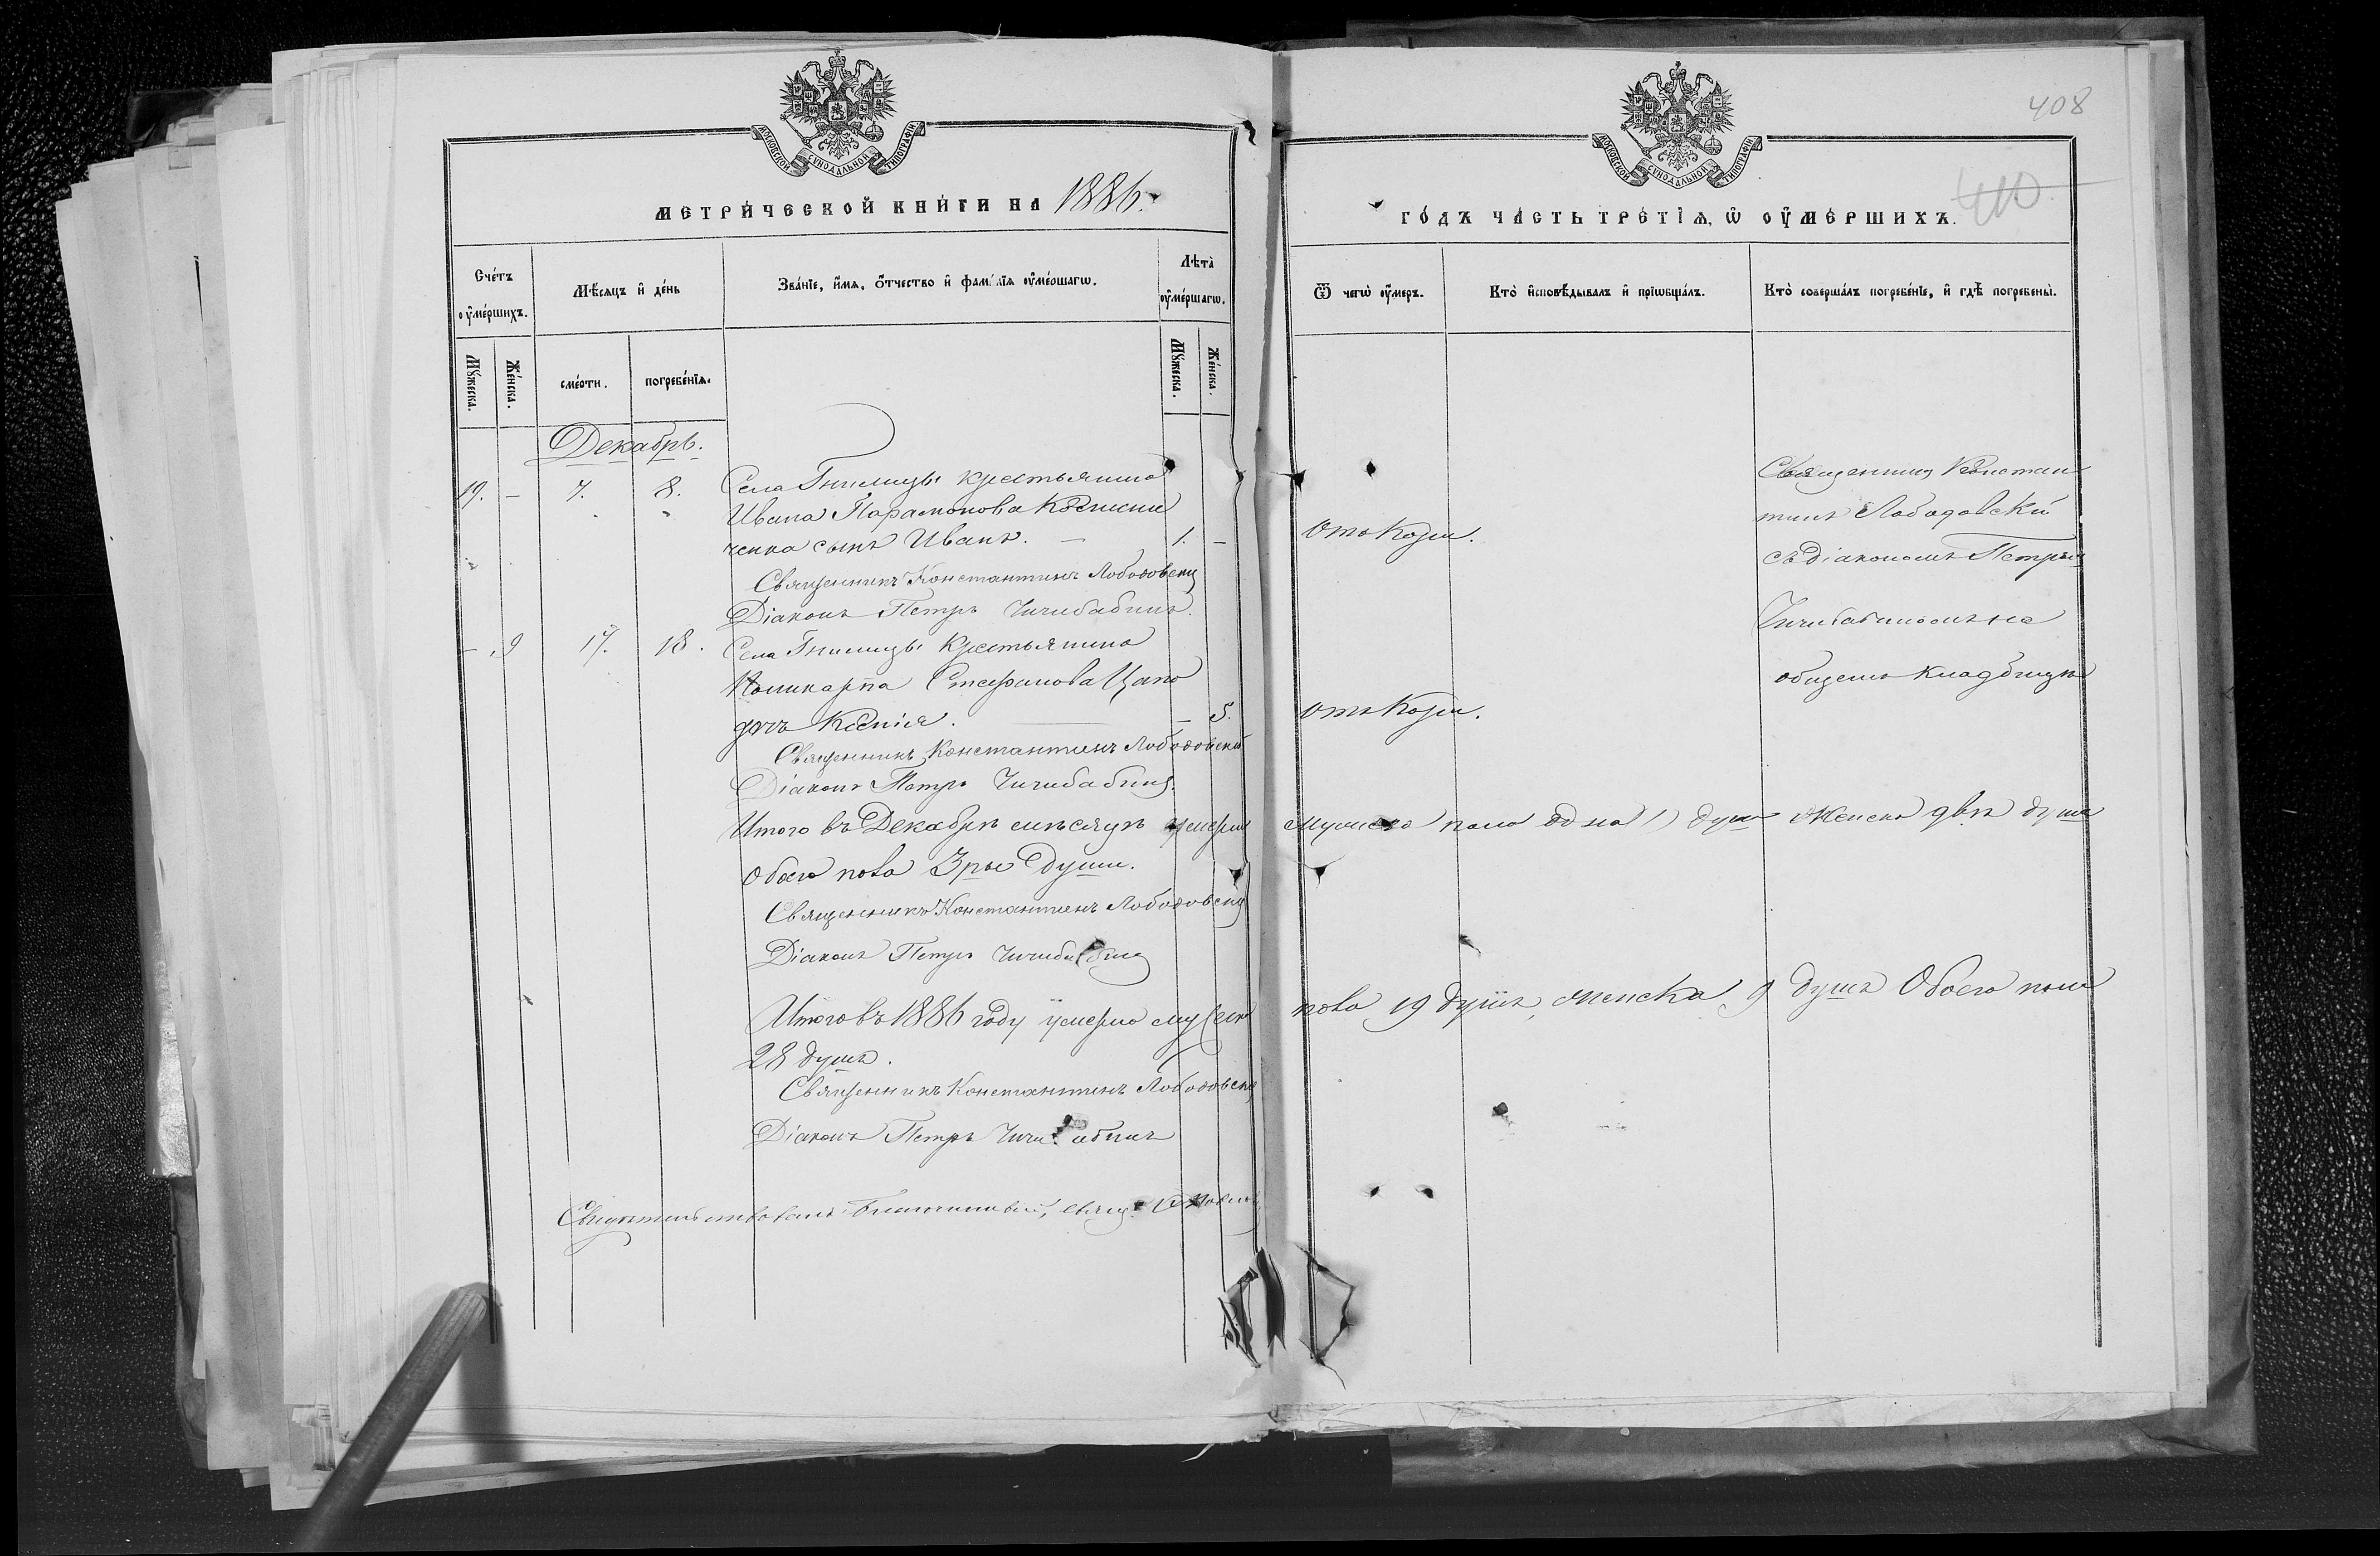 МОСКОВСКОЙ СѴНОДАЛЬНОЙ ТИПОГРАФІИ
МЕТРИЧЕСКОЙ КНИГИ НА 1886.
Счетъ оумершихъ.
Мѣсяцъ и день
Званіе, имя, отчество и фамилія оумершагω.
Лѣта оумершагω.
Мужеска.
Женска.
смерти.
погребенія.
Мужеска.
Женска.
Декабрь.
19. – 7. 8. Села Гнилицы крестьянина
Ивана Парамонова
ченка сынъ Иванъ. – 1. –
Священникъ Константинъ Лободовскій
Діаконъ Петръ Чичибабинъ.
– 9 17. 18. Села Гнилицы крестьянина
Поликарпа Стефанова Цапо
дочь Ксенія. – 5.
Священникъ Константинъ Лободовскій
Діаконъ Петръ Чичибабинъ.
Итого въ Декабрѣ мѣсяцѣ умерло
Обоего пола 3ри души.
Священникъ Константинъ Лободовскій
Діаконъ Петръ Чичибабинъ
Итого въ 1886 году умерло муж
28 душъ.
Священникъ Константинъ Лободовскій
Діаконъ Петръ Чичибабинъ
Свидѣтельствовалъ Благочинный, свящ.
408
410
МОСКОВСКОЙ СѴНОДАЛЬНОЙ ТИПОГРАФІИ
ГОДЪ ЧАСТЬ ТРЕТІѦ, Ѡ ОУМЕРШИХЪ.
Ѿ чегω оумеръ.
Кто исповѣдывалъ и пріωбщалъ.
Кто совершалъ погребеніе, и гдѣ погребены.
Священникъ Констан
тинъ Лободовскій
отъ кори.
съ діакономъ Петромъ
Чичибабинымъ на
общемъ кладбищѣ
отъ кори.
мужеска пола одна 1) душа женска двѣ души
пола 19 душъ, женска 9 душъ Обоего пола